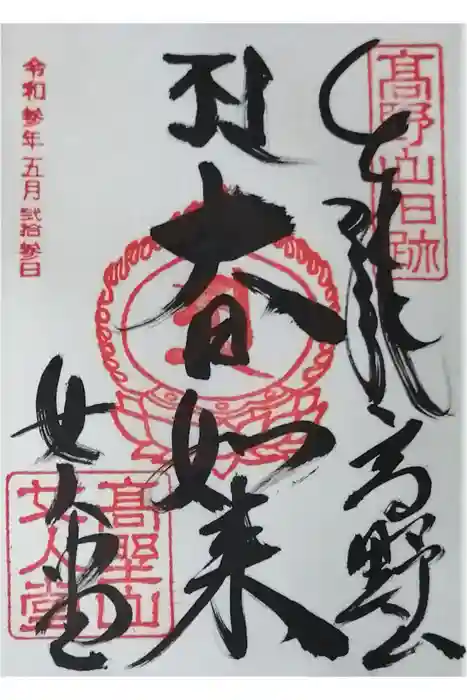 髙野山旧跡
高野山
大日如来
女人堂
髙野山
女人堂
令和参年五月弐拾参日